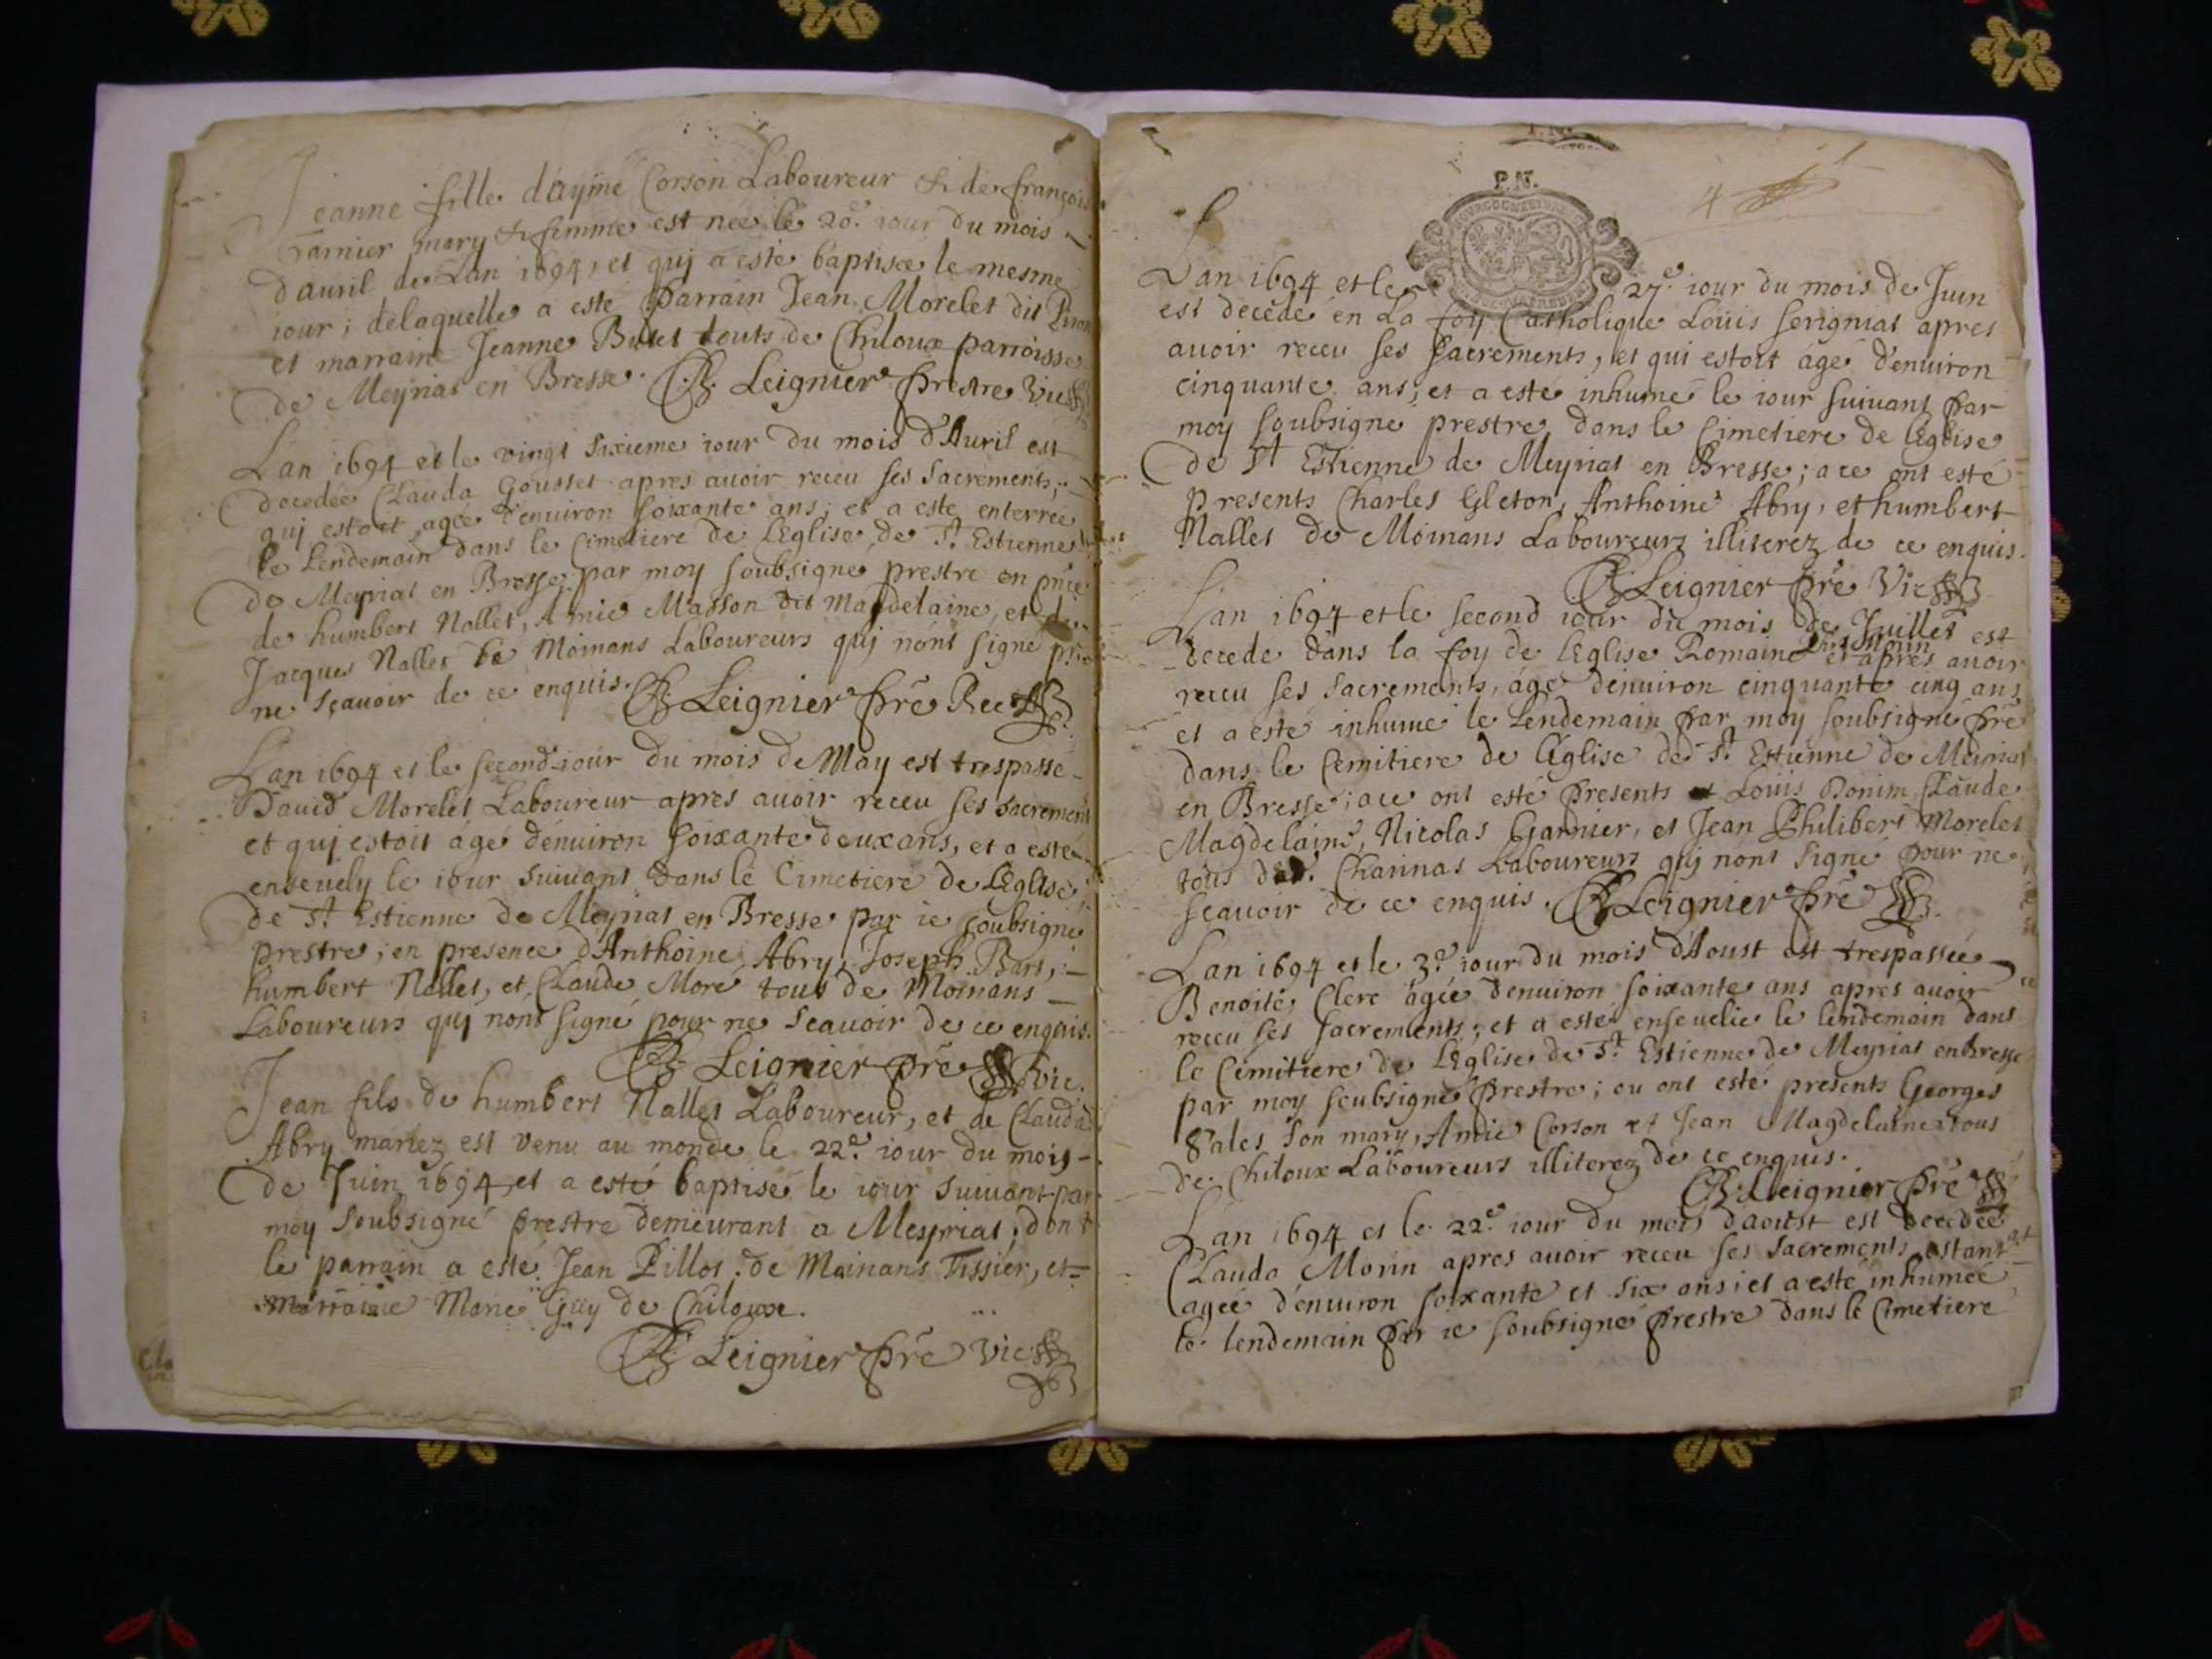 Jeanne fille d'ayme Corson Laboureur & de françoise
Garnier mary & femme est neé le 20e. iour du mois
d'auril de Lan 1694, et quj a esté baptiseé le mesme
iour; delaquelle a esté parrain Jean Morelet dit
et marraine Jeanne touts de Chiloux parroisse
de Meyriat en Bresse. Leignier prestre Vic
Lan 1694 et le vingt sixieme iour du mois d'Auril est
decedeé Clauda Gousset apres auoir receu ses sacrements,
quj estoit ageé d'enuiron soixante ans; et a esté enterreé
le Lendemain dans le cimetiere de L'Eglise de St. Estienne
de Meyriat en Bresse, par moy soubsigne prestre en pnce
de humbert Nallet, Amie Masson dit Magdelaine, et de
Jacques Nallet de Moinans Laboureurs quj n'ont signé
ne sçauoir de ce enquis. Leignier prē Rec
Lan 1694 et le second iour du mois de May est trespassé
Dauid Morelet Laboureur apres auoir receu ses sacrements
et quj estoit agé d'enuiron soixante deux ans, et a esté
enseuely le iour suiuant dans le Cimetiere de L'Eglise
de St Estienne de Meyriat en Bresse par ie soubsigné
prestre; en presence d'Anthoine Abry, Joseph Bart,
humbert Nallet, et Claude Moré tous de Moinans
Laboureurs quj n'ont signé pour ne scauoir de ce enquis.
Leignier prē Vic.
Jean fils de humbert Nallet Laboureur, et de Clauda
Abry mariez est venu au monde le 22e. iour du mois
de Juin 1694, et a esté baptisé le iour suiuant par
moy soubsigné prestre demeurant a Meyriat; dont
le parrain a esté Jean Pillot de Moinans Tissier, et
marraine Marie Guy de Chiloux.
Leignier prē Vic
P.N.
4
Lan 1694 et le 27e. iour du mois de Juin
est decedé en La foy Catholique Loüis Serignat apres
auoir receu ses sacrements, et qui estoit agé d'enuiron
cinquante ans; et a esté inhumé le iour suiuant par
moy soubsigné prestre dans le Cimetiere de l'Eglise
de St Estienne de Meyriat en Bresse; a ce ont esté
presents Charles Gleton, Anthoine Abry, et humbert
Nallet de Moinans Laboureurs illiterez de ce enquis.
Leignier prē Vic
Lan 1694 et le second iour du mois de Juillet est
decedé dans la foy de l'Eglise Romaine et apres auoir
receu ses sacrements, agé d'enuiron cinquante cinq ans
et a esté inhumé le Lendemain par moy soubsigné prē
dans le Cemitiere de l'Eglise de St. Estienne de Meiriat
en Bresse; a ce ont esté presents Loüis Bonim Claude
Magdelaine, Nicolas Garnier, et Jean Philibert Morelet
tous de Charinas Laboureurs quj n'ont signé pour ne
scauoir de ce enquis. Leignier prē
Lan 1694 et le 3e. iour du mois d'Aoust est trespasseé
Benoite Clerc ageé d'enuiron soixante ans apres auoir
receu ses sacrements; et a esté enseuelie le lendemain dans
le Cimitiere de L'Eglise de St. Estienne de Meyriat en Bresse
par moy soubsigné prestre; ou ont esté presents Georges
Sales son mary, Amie Corson et Jean Magdelaine tous
de Chiloux Laboureurs illiterez de ce enquis.
Leignier prē
Lan 1694 et le 22e. iour du mois d'aoust est decedeé
Clauda Morin apres auoir receu ses sacrements estant
ageé d'enuiron soixante et six ans; et a esté inhumeé
le lendemain par ie soubsigné prestre dans le Cimetiere